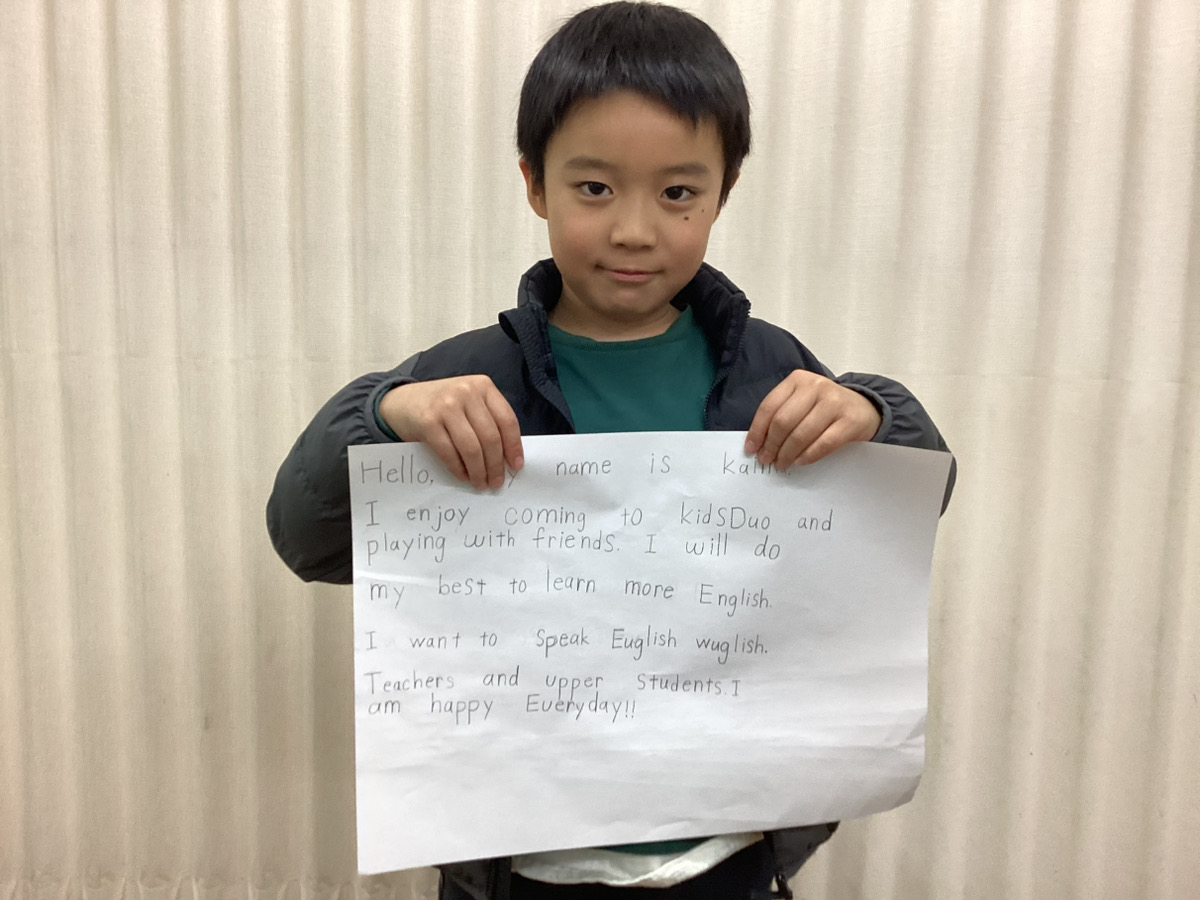 Hello, name is
I enjoy coming to kidSDuo and
playing with friends. I will do
my best to learn more English.
I want to Speak Euglish wuglish.
Teachers and upper Students. I
am happy Everyday!!